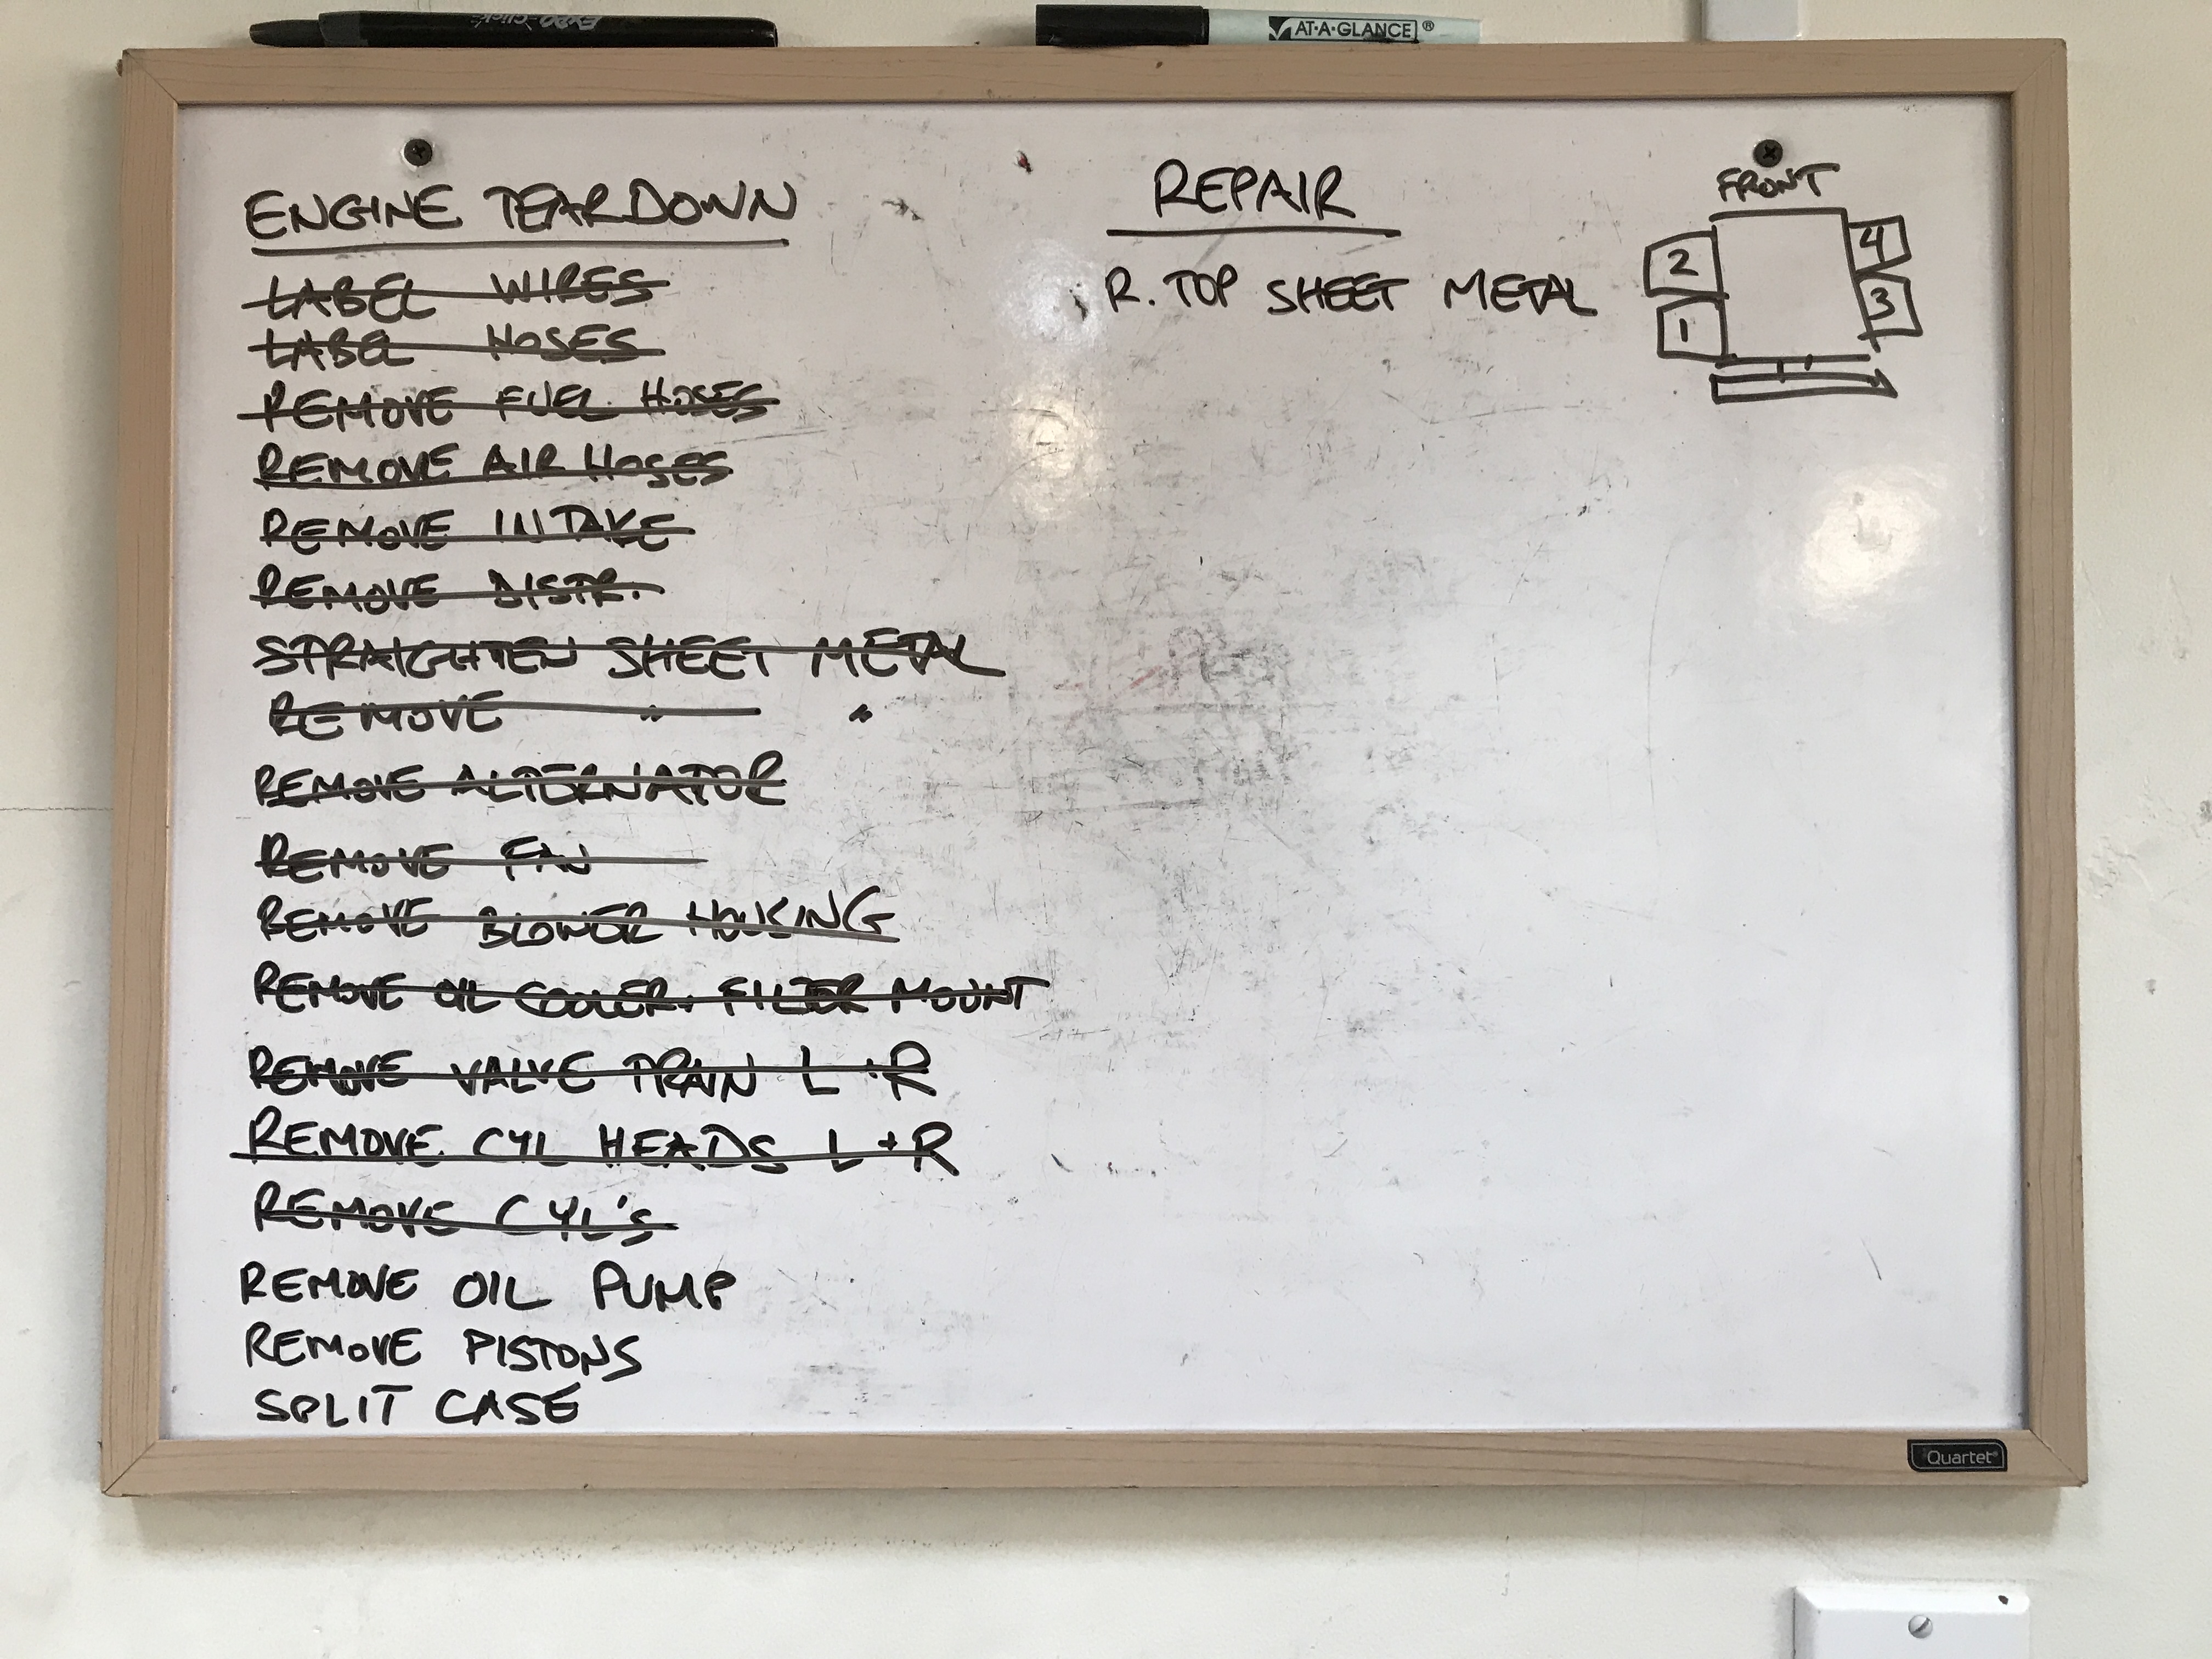 Expo Click
AT-A-GLANCE®
ENGINE TEARDOWN
LABEL WIRES
LABEL HOSES
REMOVE FUEL HOSES
REMOVE AIR HOSES
REMOVE INTAKE
REMOVE DISTR.
STRAIGHTEN SHEET METAL
REMOVE " "
REMOVE ALTERNATOR
REMOVE FAN
REMOVE BLOWER HOUSING
REMOVE OIL COOLER + FILTER MOUNT
REMOVE VALVE TRAIN L + R
REMOVE CYL HEADS L + R
REMOVE CYL'S
REMOVE OIL PUMP
REMOVE PISTONS
SPLIT CASE
REPAIR
R. TOP SHEET METAL
FRONT
2 4
1 3
Quartet